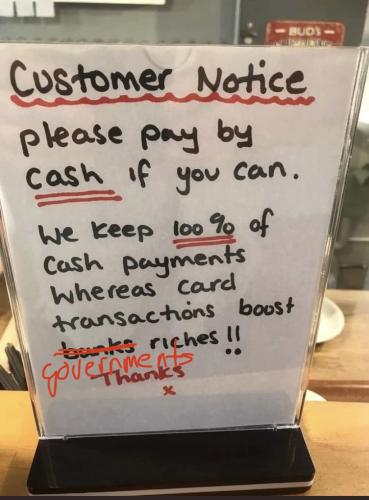 BUD'S
Customer Notice
please pay by
cash if you can.
We keep 100% of
cash payments
whereas card
transactions boost
banks riches!!
governments
Thanks
x